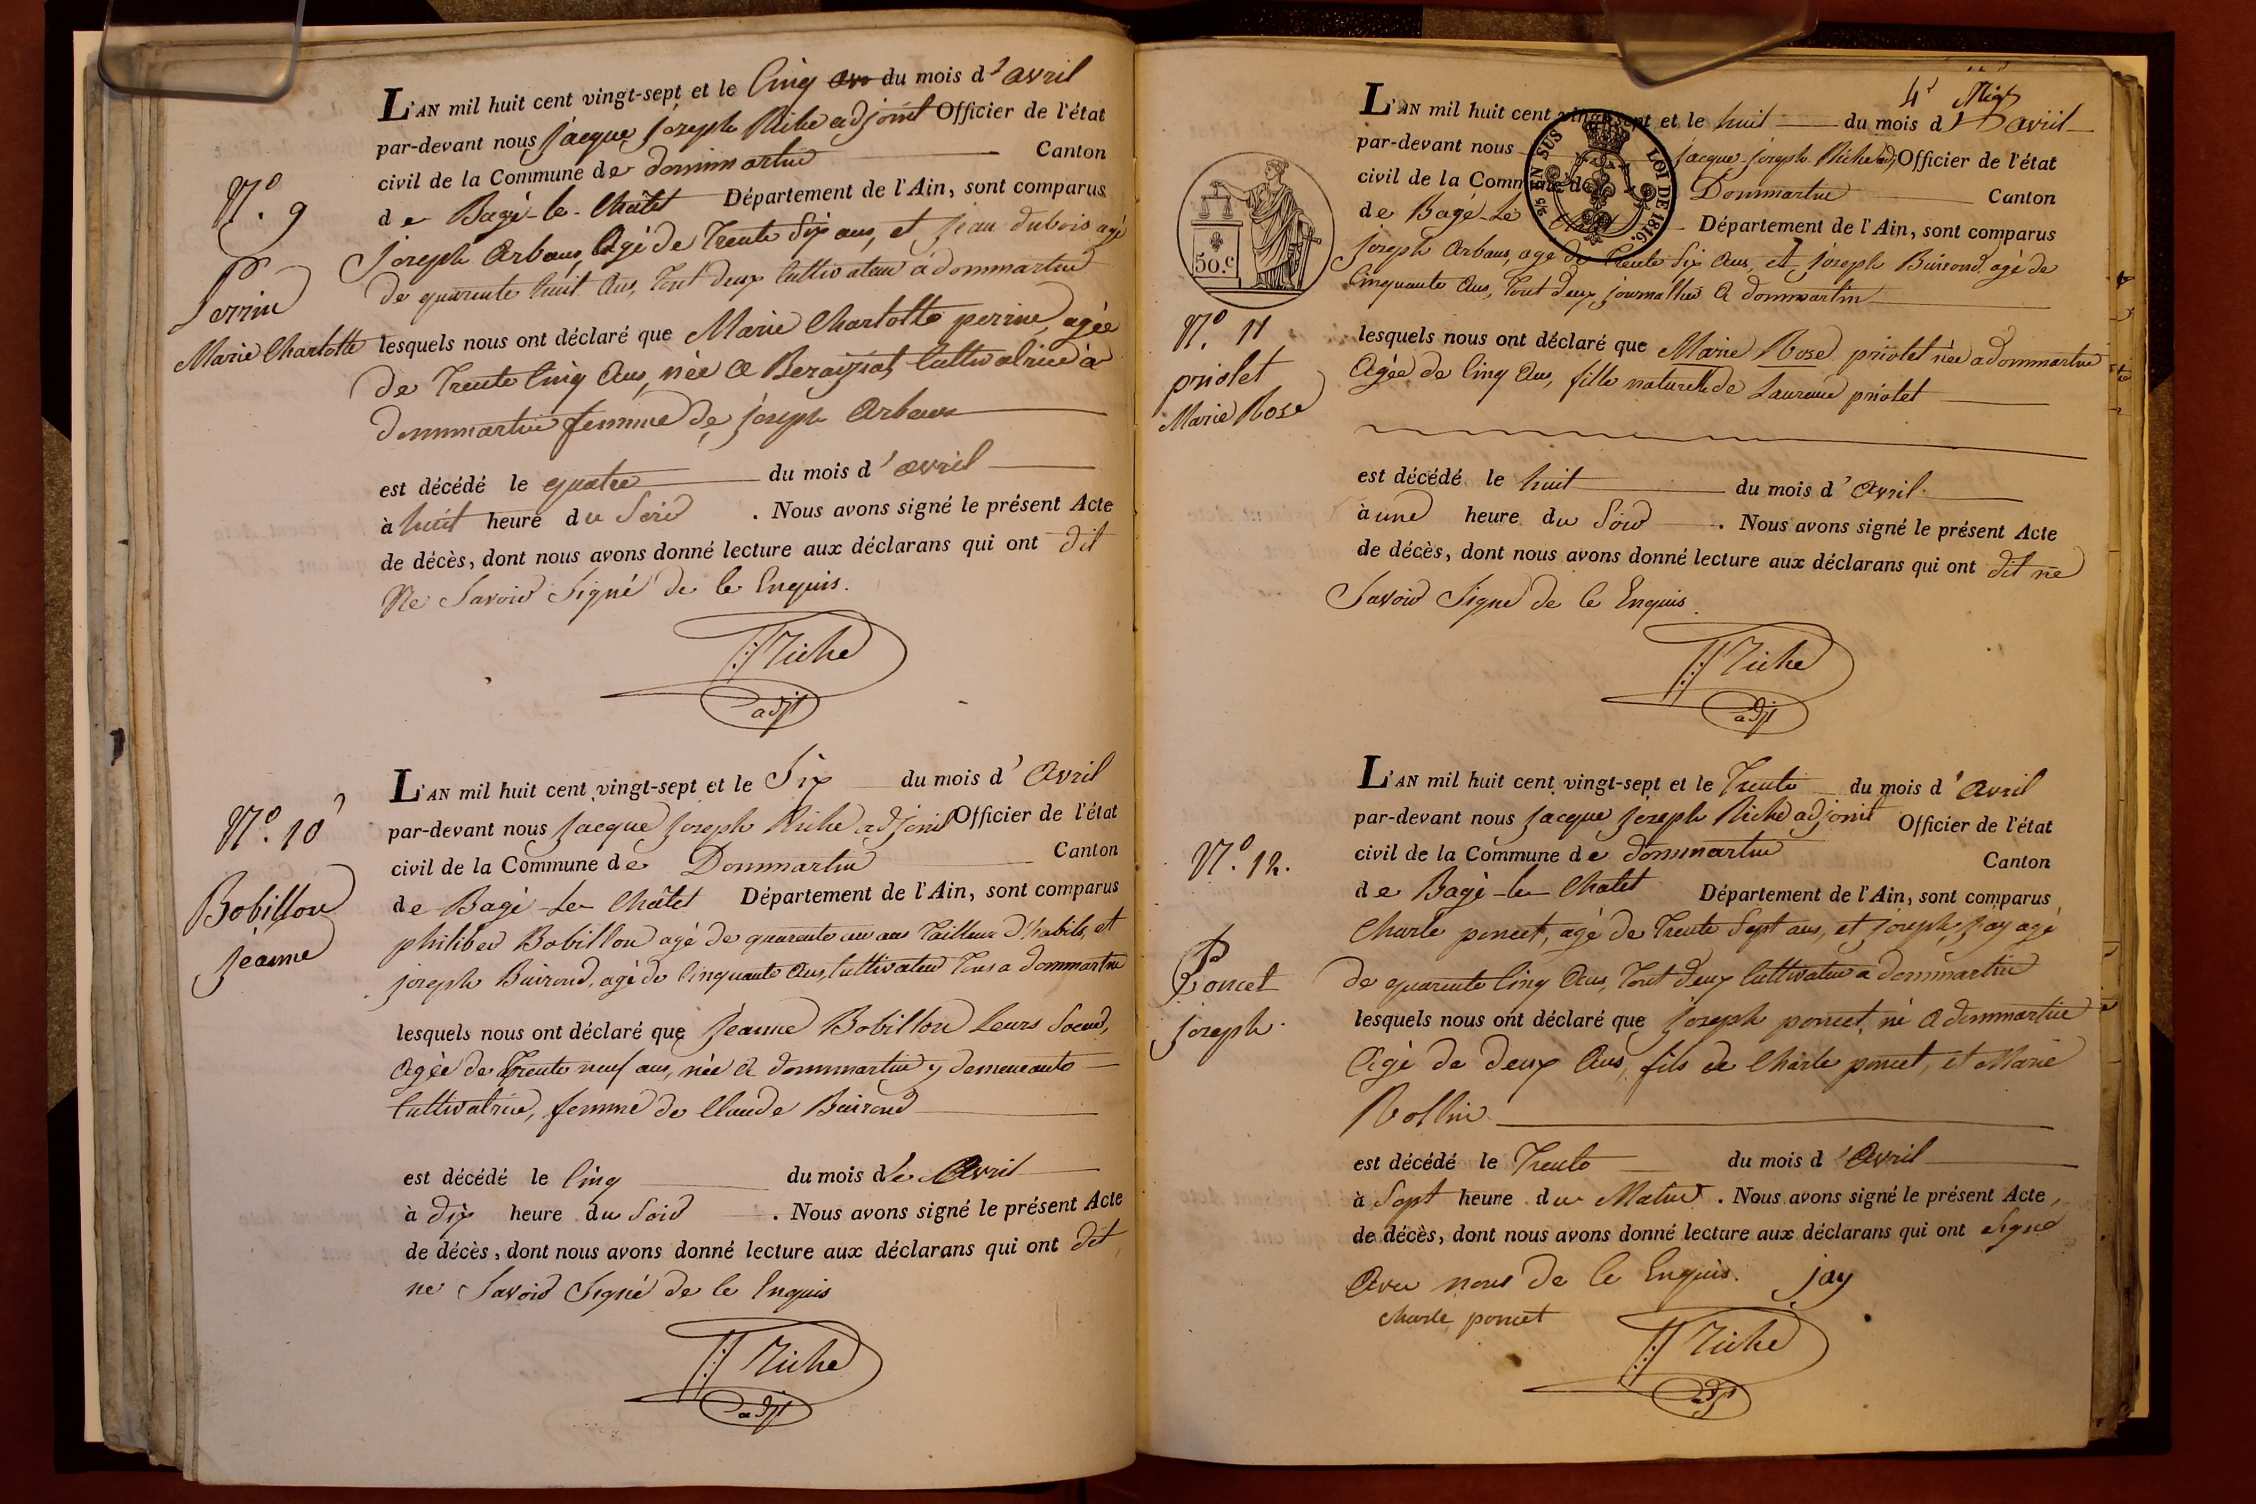 L'AN mil huit cent vingt-sept et le Cinq du mois d'avril
par-devant nous jacque joseph Riche adjoint Officier de l'état
civil de la Commune de dommartin Canton
de Bagé-le-Châtel Département de l'Ain, sont comparus
joseph Arbaus, agé de Trente Six ans, et jean dubois agé
de quarente huit ans, Tout deux Cultivateur à dommartin
N.º 9
Perrin
Marie Charlotte
lesquels nous ont déclaré que Marie Charlotte perrin, agée
de Trente Cinq ans, née a Beraiziat, Cultivatrice à
dommartin femme de joseph Arbaus
est décédé le quatre du mois d'avril
à huit heure du Soir . Nous avons signé le présent Acte
de décès, dont nous avons donné lecture aux déclarans qui ont dit
Ne Savoir Signé de ce Enquis.
Riche
adjt
L'AN mil huit cent vingt-sept et le Six du mois d'Avril
par-devant nous jacque joseph Riche adjoint Officier de l'état
civil de la Commune de Dommartin Canton
de Bagé-Le-Châtel Département de l'Ain, sont comparus
philiber Bobillon agé de quarente un ans Tailleur D'habits, et
joseph Buirond, agé de Cinquante ans, Cultivateur Tous a dommartin
N.º 10
Bobillon
jeanne
lesquels nous ont déclaré que jeanne Bobillon Leurs Soeur,
agée de Trente neuf ans, née a dommartin y demeurante
Cultivatrice, femme de Claude Buirond
est décédé le Cinq du mois de Avril
à dix heure du Soir . Nous avons signé le présent Acte
de décès, dont nous avons donné lecture aux déclarans qui ont dit
ne Savoir Signé de ce Enquis
Riche
adjt
L'AN mil huit cent vingt-sept et le huit du mois d'avril
par-devant nous jacque-joseph Riche adj Officier de l'état
civil de la Commune de Dommartin Canton
de Bagé-Le Châtel Département de l'Ain, sont comparus
5/5 EN SUS LOI DE 1816.
50.c
joseph Arbaus, agé de Trente Six ans, et joseph Buirond, agé de
Cinquante ans, Tout deux journallier a dommartin
N.º 11
priolet
Marie Rose
lesquels nous ont déclaré que Marie Rose priolet née a dommartin
Agée de Cinq ans, fille naturelle de Laurence priolet
est décédé le huit du mois d'Avril
à une heure du Soir . Nous avons signé le présent Acte
de décès, dont nous avons donné lecture aux déclarans qui ont dit ne
Savoir Signé de ce Enquis
Riche
adjt
L'AN mil huit cent vingt-sept et le Trente du mois d'avril
par-devant nous jacque joseph Riche adjoint Officier de l'état
civil de la Commune de dommartin Canton
de Bagé-le-Chatel Département de l'Ain, sont comparus
Charle poncet, agé de Trente Sept ans, et joseph jay agé
de quarente Cinq ans, Tout deux Cultivateur a dommartin
N.º 12.
Poncet
joseph
lesquels nous ont déclaré que joseph poncet, né a dommartin
Agé de deux ans, fils de Charle poncet, et Marie
Rollin
est décédé le Trente du mois d'Avril
à Sept heure du Matin . Nous avons signé le présent Acte
de décès, dont nous avons donné lecture aux déclarans qui ont Signé
Avec nous de ce Enquis. jay
charle poncet
Riche
adjt